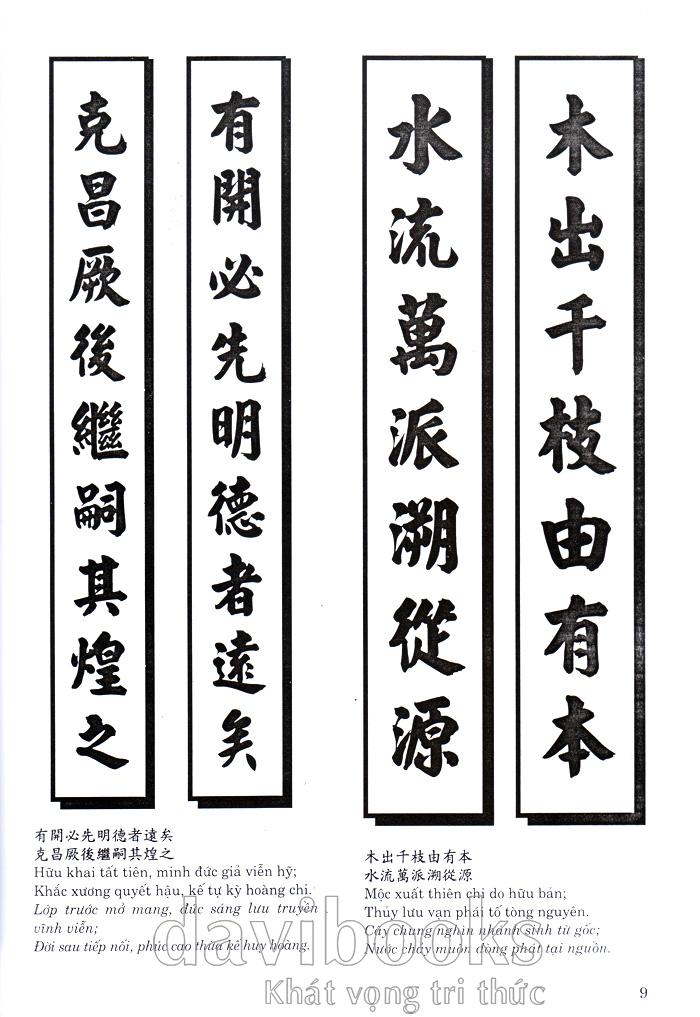 木出千枝由有本
水流萬派溯從源
有開必先明德者遠矣
克昌厥後繼嗣其煌之
有開必先明德者遠矣
克昌厥後繼嗣其煌之
Hữu khai tất tiên, minh đức giả viễn hỹ;
Khắc xương quyết hậu, kế tự kỳ hoàng chi.
Lớp trước mở mang, đức sáng lưu truyền
vĩnh viễn;
Đời sau tiếp nối, phúc cao thừa kế huy hoàng.
木出千枝由有本
水流萬派溯從源
Mộc xuất thiên chi do hữu bản;
Thủy lưu vạn phái tố tòng nguyên.
Cây chung nghìn nhánh sinh từ gốc;
Nước chảy muôn dòng phát tại nguồn.
davibooks
Khát vọng tri thức
9